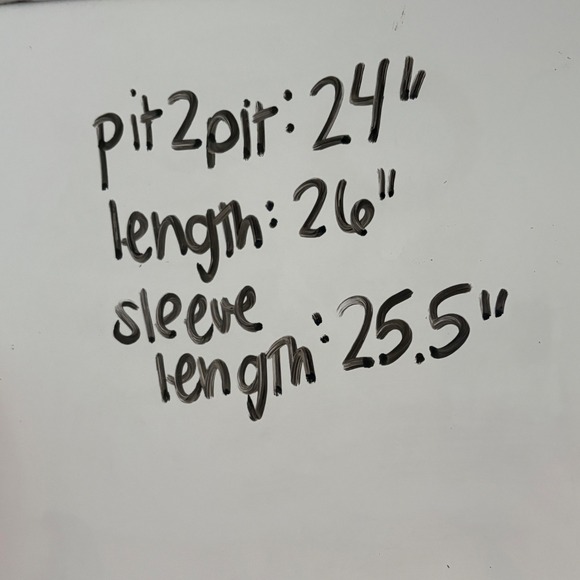 pit2pit: 24"
length: 26"
sleeve
length: 25.5"